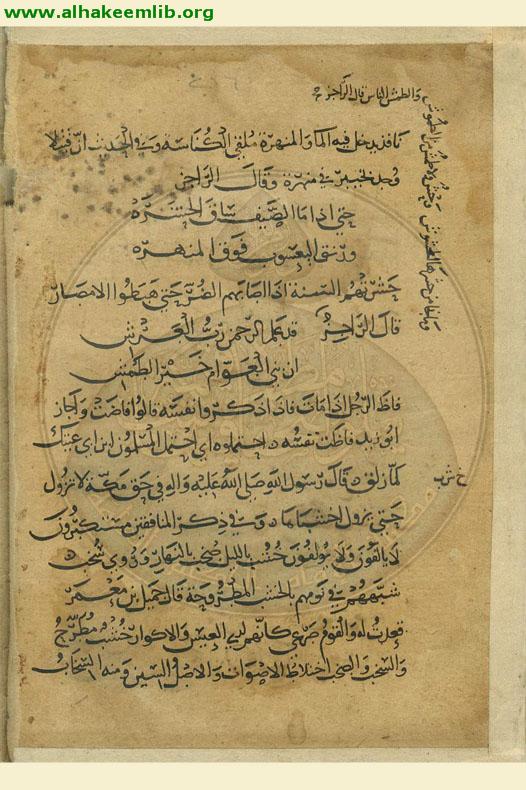 www.alhakeemlib.org
والطمش الناس قال الراجز
وحش ولا طمش من الطموش
نافذ يدخل فيه الماء والمنهرة ملقى الكناسة وفي الحديث ان قتيلا
وجد بخيبر في منهرة وقال الراجز
حتى اذا ما الصيف ساق الحشره
ورنق اليعسوب فوق المنهره
حشرتهم السنة اذا اصابهم الضر حتى هبطوا الامصار
قال الراجز قد علم الرحمن رب العرش
ان بني العوام خير الطمش
فاظ الرجل اذا مات فاذا ذكروا نفسه قالوا فاضت واجاز
ابو زيد فاظت نفسه احتملوه اي احتمل المسلمون ابن ابي عتيك
لما زلق قال رسول الله صلى الله عليه واله في حق مكة لا تزول
خ ش ب
حتى يزول اخشباها وفي ذكر المنافقين مستكبرون
لا يألفون ولا يؤلفون خشب بالليل صخب بالنهار وروي سخب
شبههم في نومهم بالخشب المطروحة قال جميل بن معمر
قعدت له والقوم صرعى كأنهم لدى العيس والاكوار خشب مطرح
والسخب والصخب اختلاط الاصوات والاصل السين ومنه السخاب